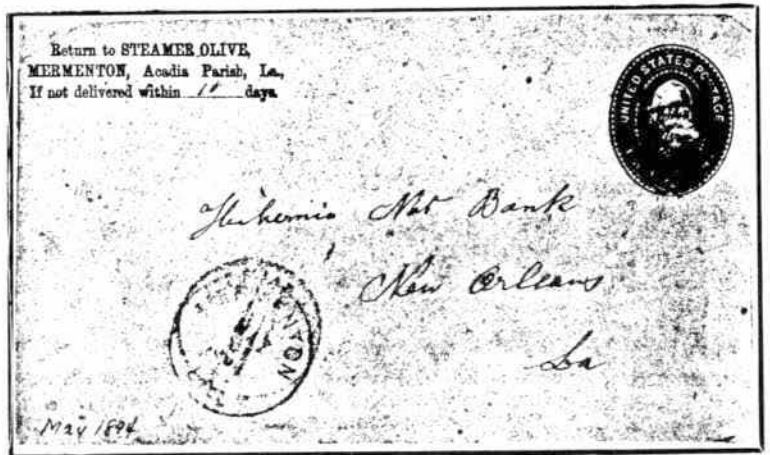 Return to STEAMER OLIVE,
MERMENTON, Acadia Parish, La.,
If not delivered within 10 days.
UNITED STATES POSTAGE
Hibernia Nat Bank
New Orleans
La
MERMENTON
May 1894